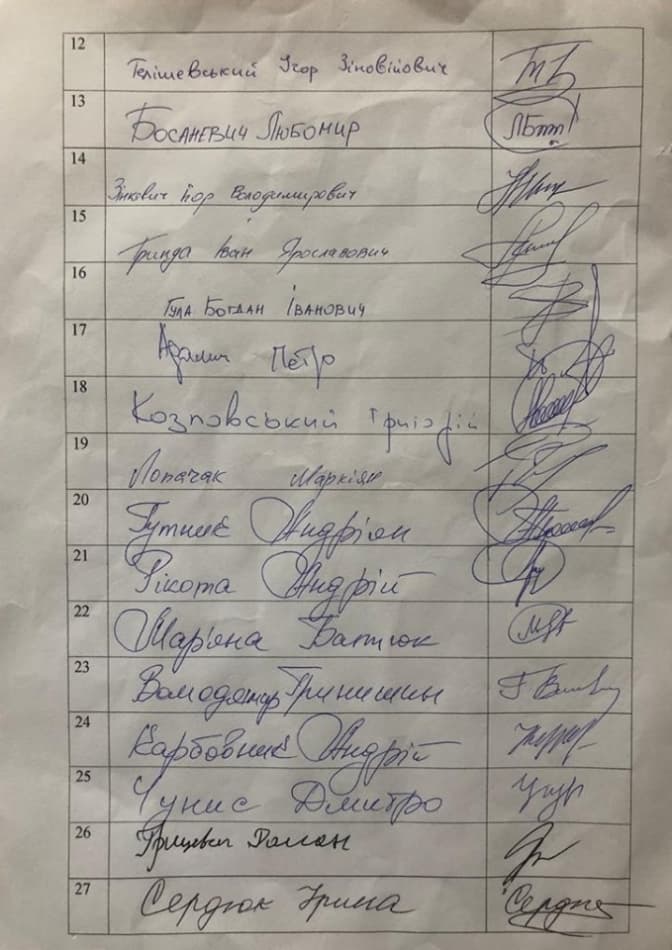 12 Телішевський Ігор Зіновійович
13 Босаневич Любомир
14 Зінкевич Ігор Володимирович
15 Гринда Іван Ярославович
16 Гула Богдан Іванович
17 Адамич Петро
18 Козловський Григорій
19 Лопачак Маркіян
20 Гутник Андріян
21 Рікота Андрій
22 Мар'яна Батюк
23 Володимир Гринишин
24 Карбовник Андрій
25 Чунис Дмитро
26 Грицевич Роман
27 Сердюк Ірина